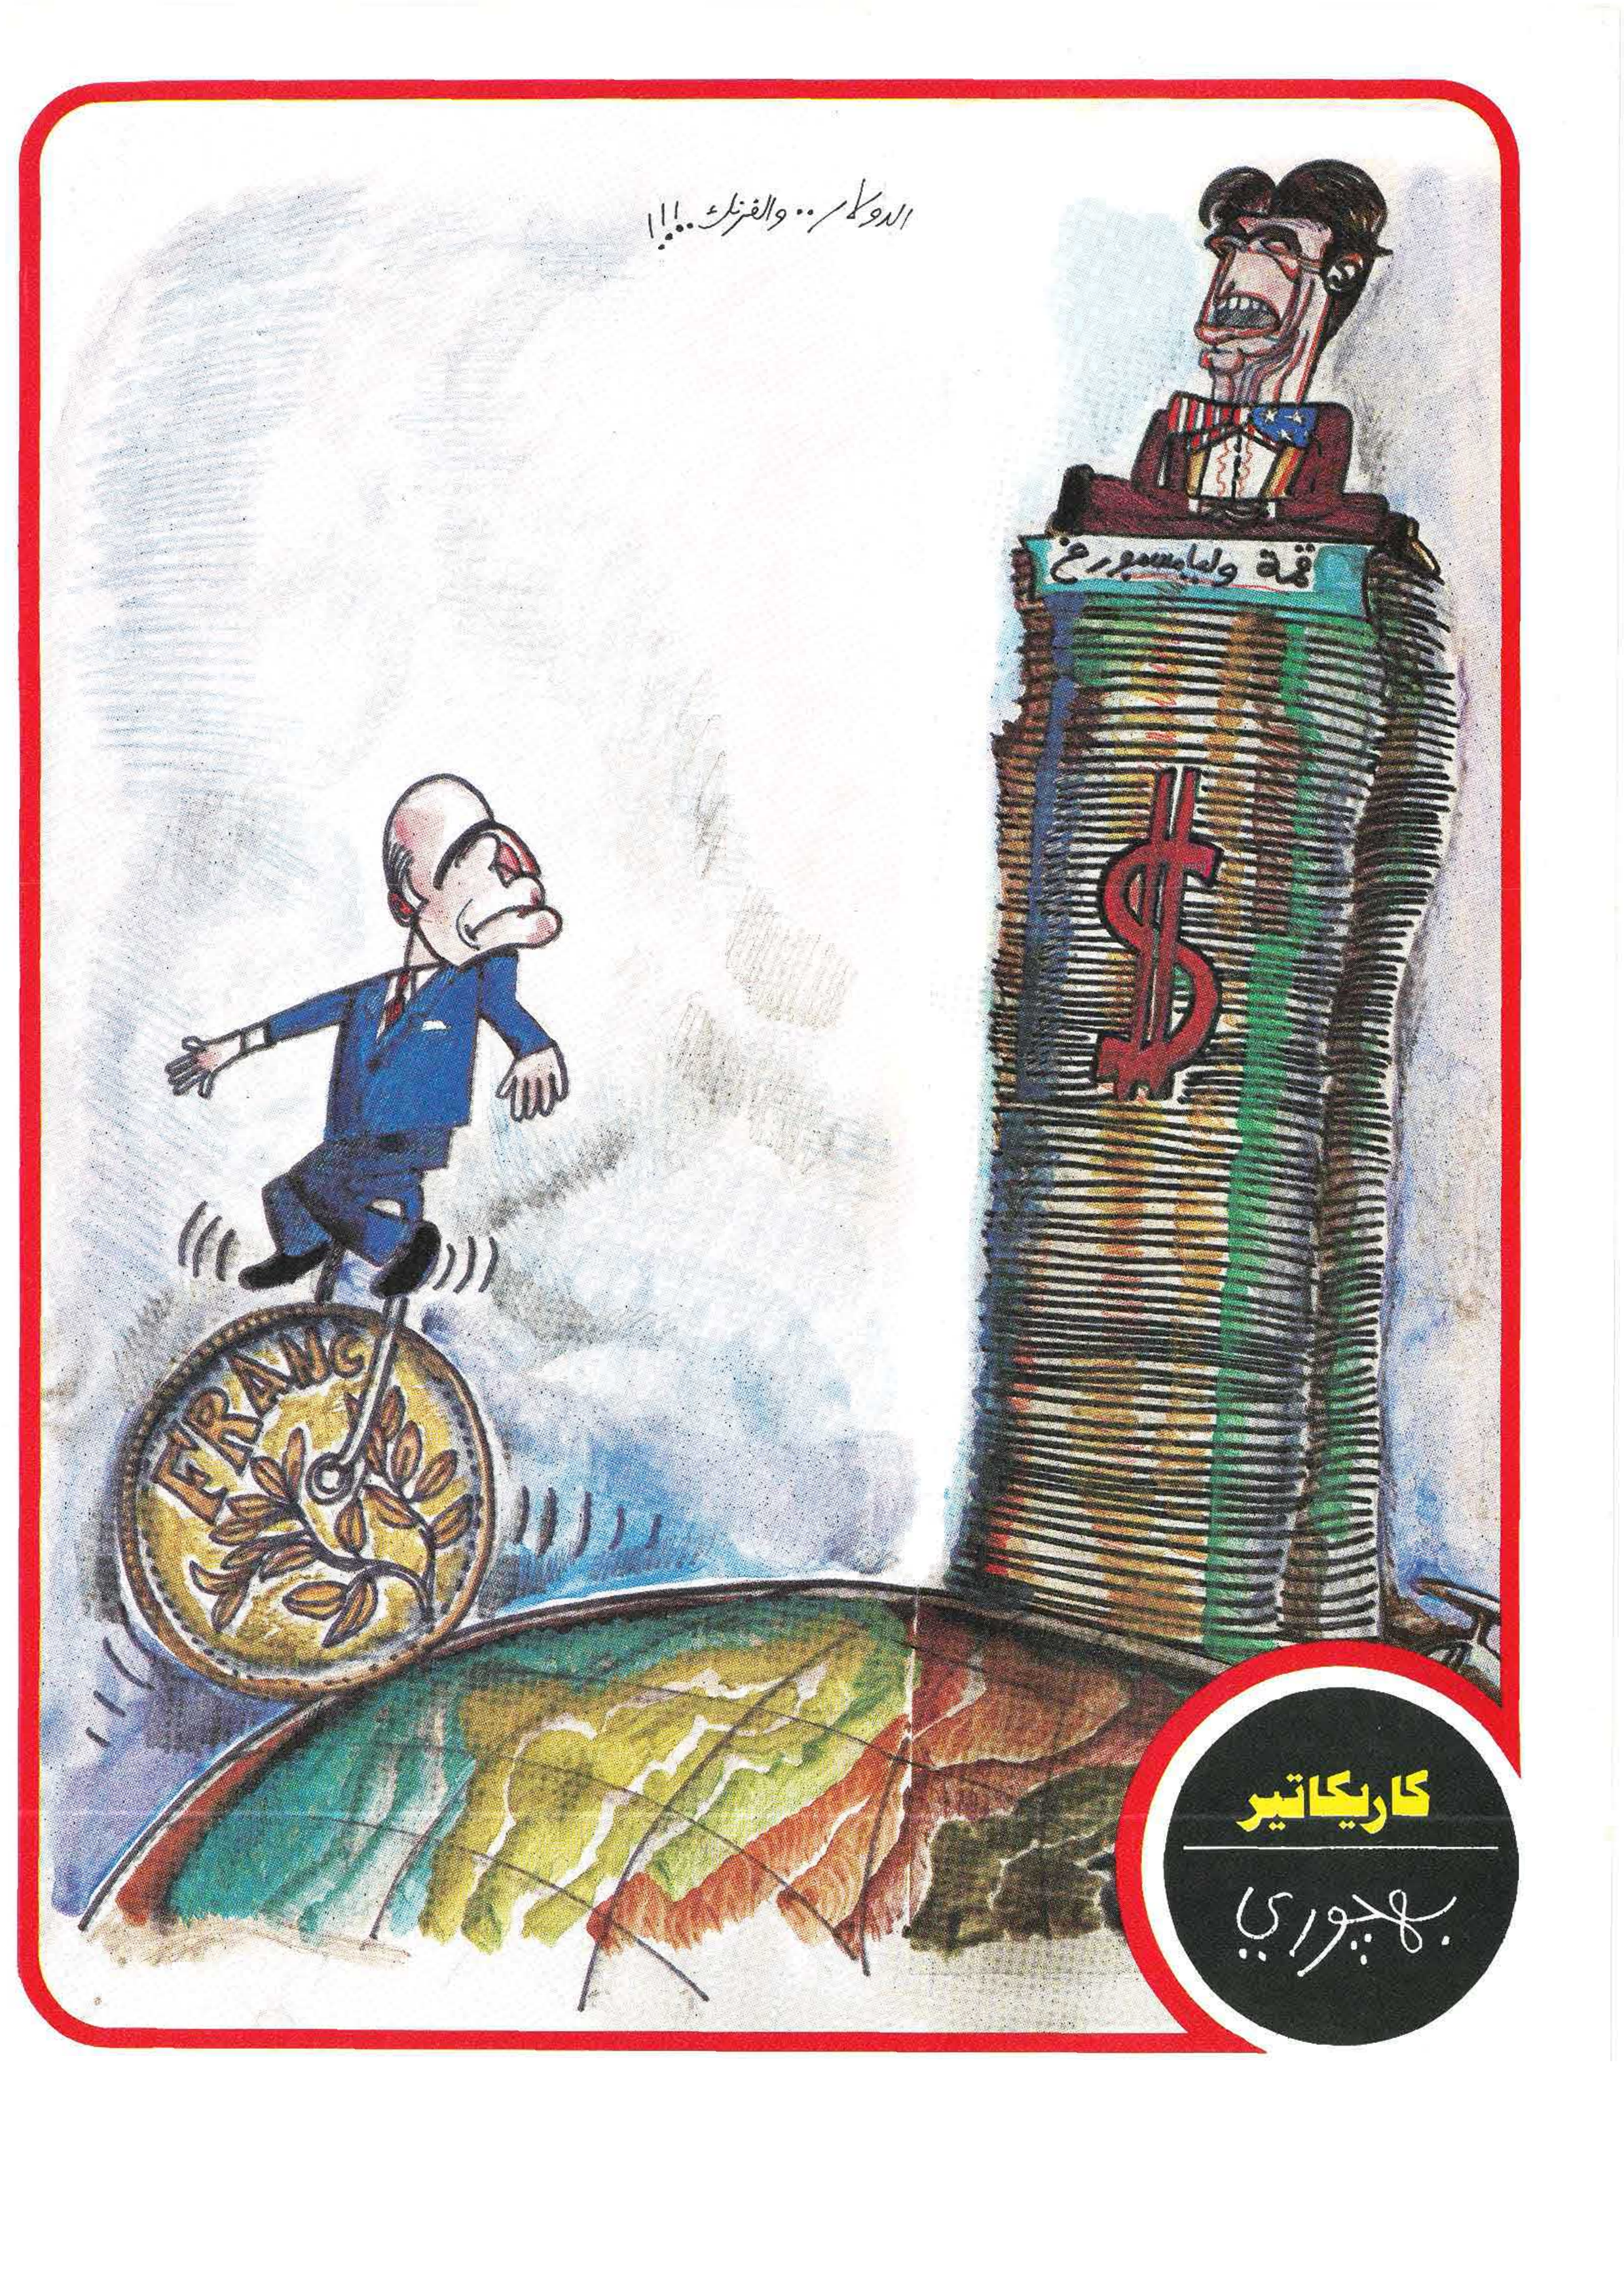 الدولار.. والفرنك..!!!
قمة وليامسبورغ
$
FRANC
كاريكاتير
بهجوري